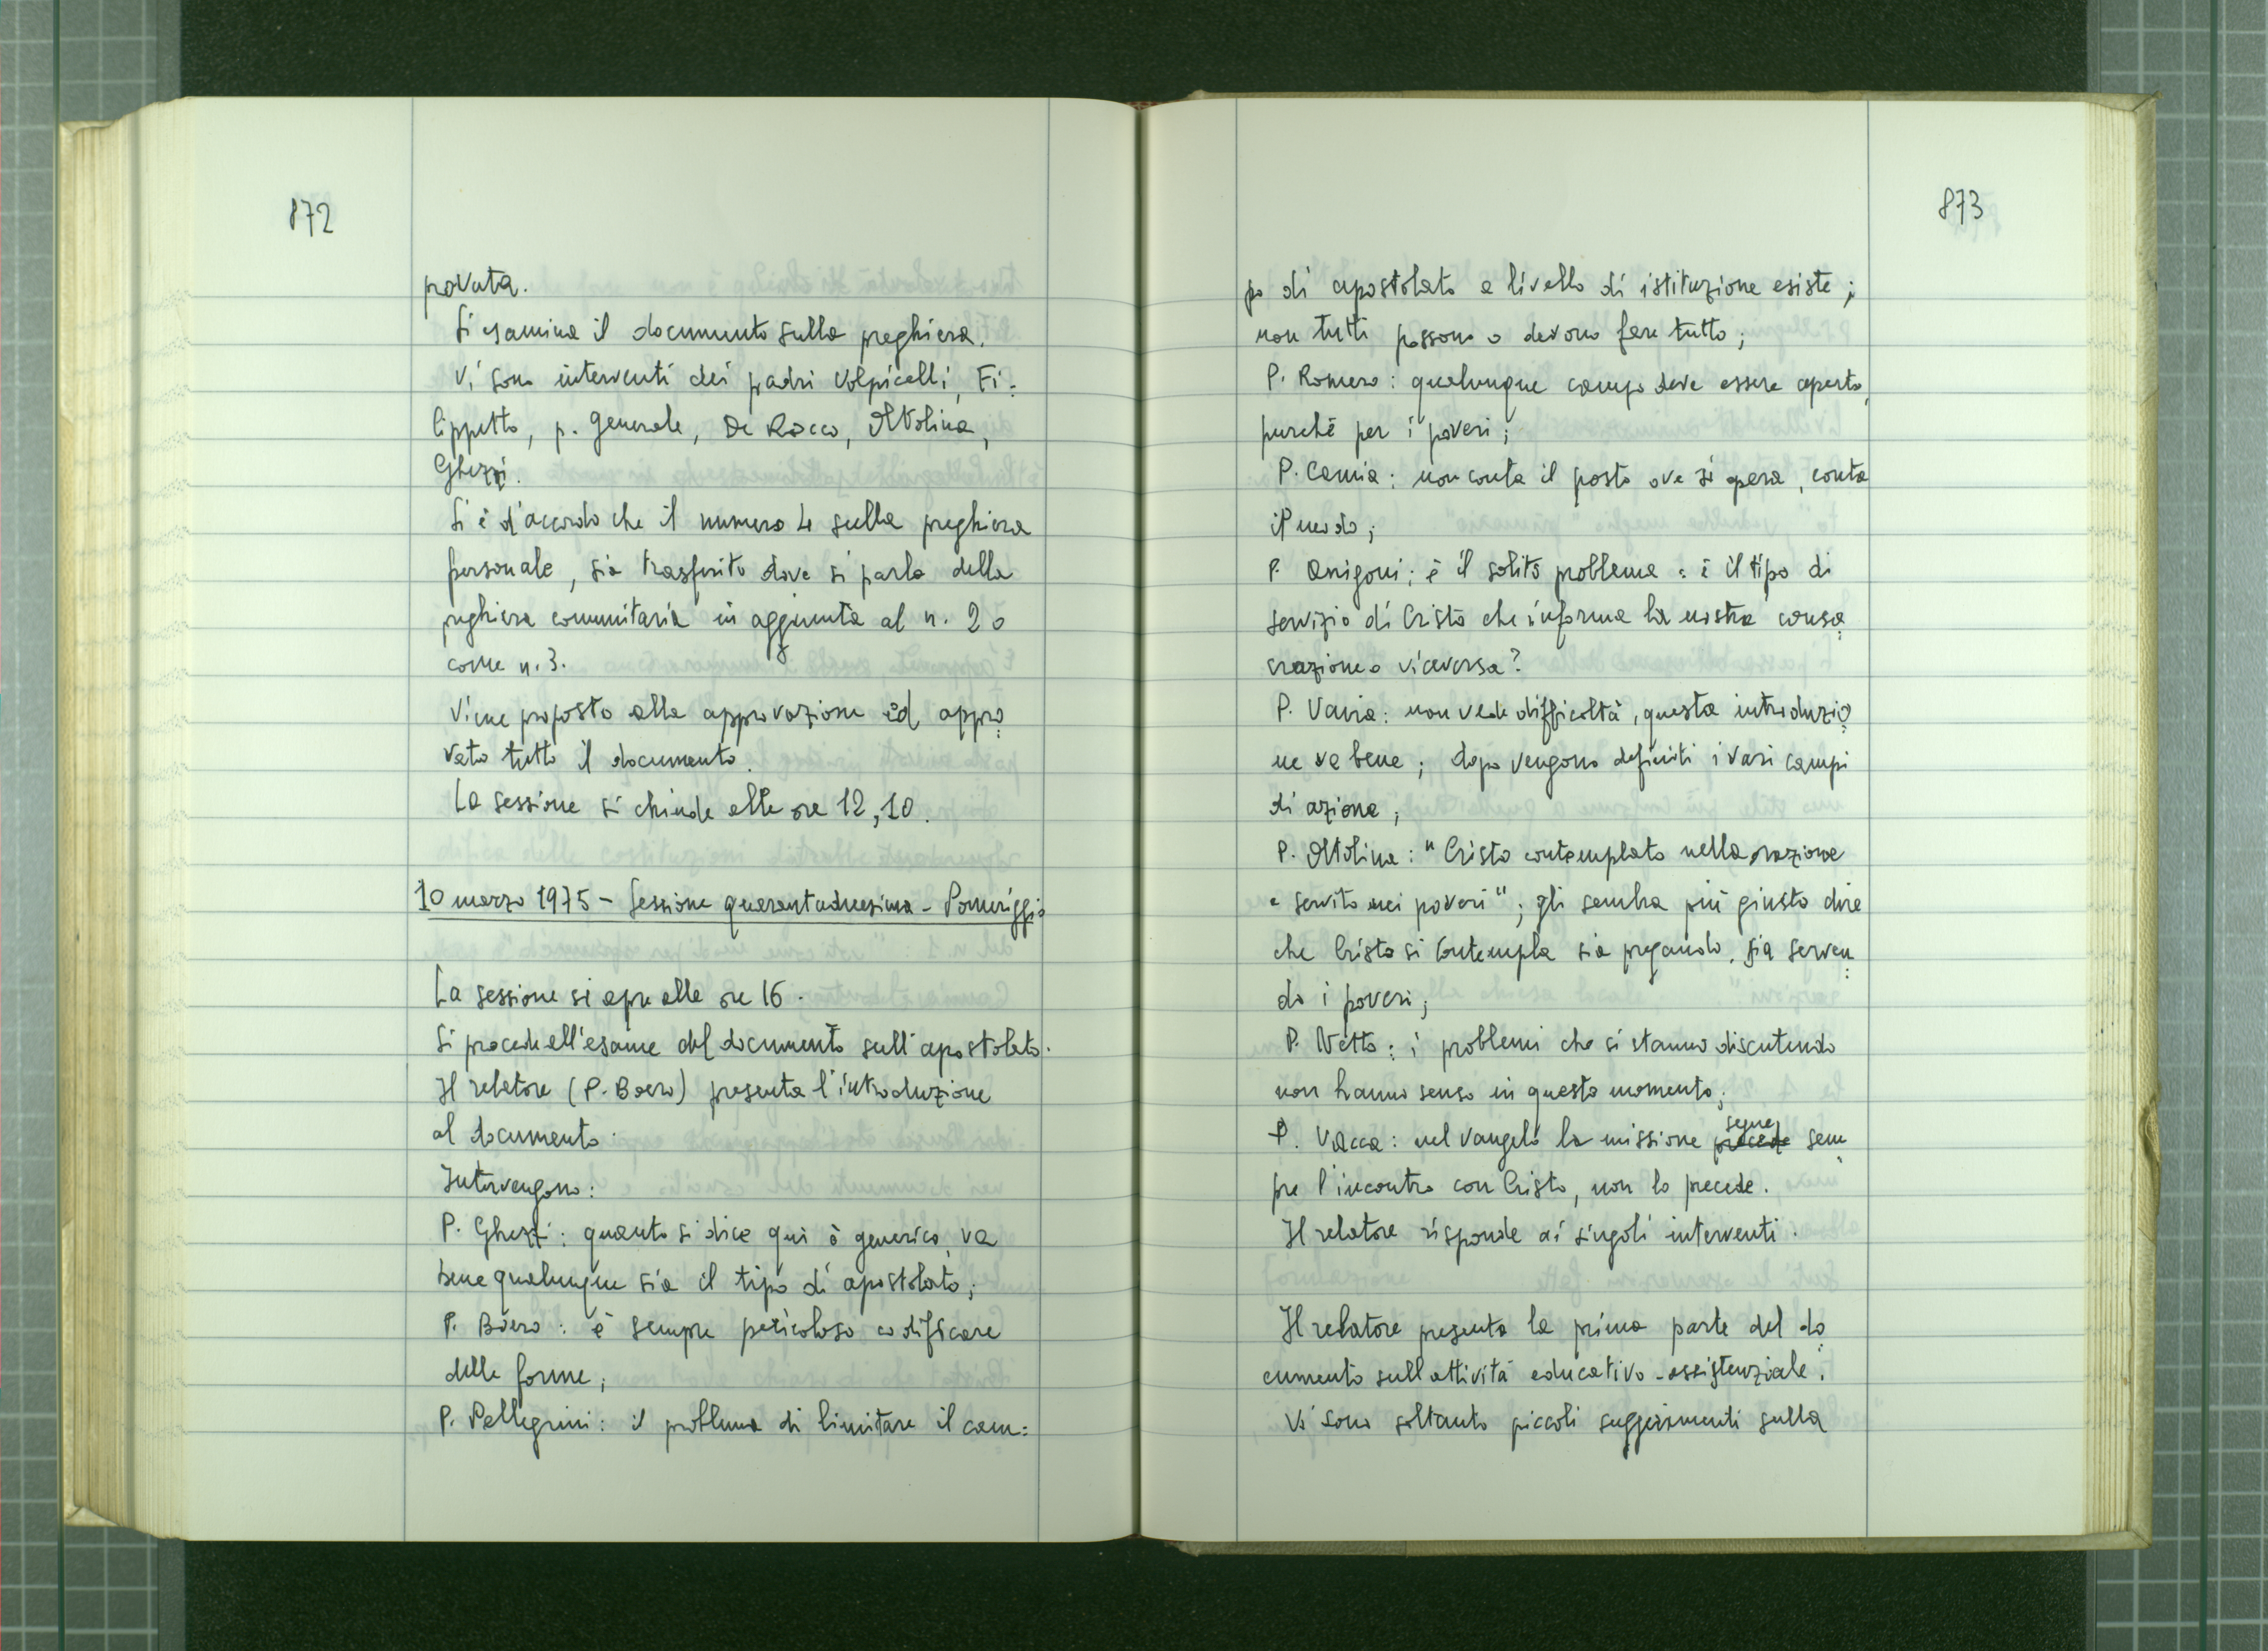 872
provata.
Si esamina il documento sulla preghiera.
Vi sono interventi dei padri Volpicelli, Fi=
lippetto, p. Generale, De Rocco, Ottolina,
Ghezzi.
Si è d'accordo che il numero 4 sulla preghiera
personale, sia trasferito dove si parla della
preghiera comunitaria in aggiunta al n. 2 o
come n. 3.
Viene proposto alla approvazione ed appro=
vato tutto il documento.
La sessione si chiude alle ore 12,10.
10 marzo 1975 - Sessione quarantaduesima - Pomeriggio
La sessione si apre alle ore 16.
Si procede all'esame del documento sull'apostolato.
Il relatore (P. Boero) presenta l'introduzione
al documento.
Intervengono:
P. Ghezzi: quanto si dice qui è generico, va
bene qualunque sia il tipo di apostolato;
P. Boero: è sempre pericoloso codificare
delle forme;
P. Pellegrini: il problema di limitare il cam=
873
po di apostolato a livello di istituzione esiste;
non tutti possono o devono fare tutto;
P. Romero: qualunque campo deve essere aperto,
purché per i poveri;
P. Camia: non conta il posto ove si opera, conta
il modo;
P. Arrigoni: è il solito problema: è il tipo di
servizio di Cristo che informa la nostra consa=
crazione o viceversa?
P. Vania: non vede difficoltà, questa introduzio=
ne va bene; dopo vengono definiti i vari campi
di azione;
P. Ottolina: "Cristo contemplato nella orazione
e servito nei poveri"; gli sembra più giusto dire
che Cristo si contempla sia pregando, sia serven=
do i poveri;
P. Netto: i problemi che si stanno discutendo
non hanno senso in questo momento;
P. Vacca: nel vangelo la missione precede segue sem=
pre l'incontro con Cristo, non lo precede.
Il relatore risponde ai singoli interventi.
Il relatore presenta la prima parte del do=
cumento sull'attività educativo-assistenziale.
Vi sono soltanto piccoli suggerimenti sulla